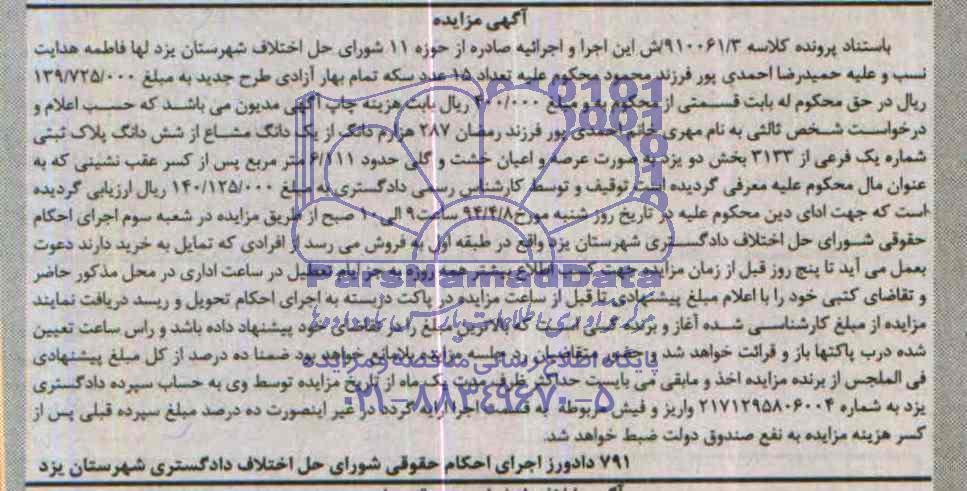 آگهی مزایده
باستناد پرونده کلاسه ۹۱۰۰۶۱/۳/ش این اجرا و اجرائیه صادره از حوزه ۱۱ شورای حل اختلاف شهرستان یزد لها فاطمه هدایت
نسب و علیه حمیدرضا احمدی پور فرزند محمود محکوم علیه تعداد ۱۵ عدد سکه تمام بهار آزادی طرح جدید به مبلغ ۱۳۹/۷۲۵/۰۰۰
ریال در حق محکوم له بابت قسمتی از محکوم به و مبلغ ۴۰۰/۰۰۰ ریال بابت هزینه چاپ آگهی مدیون می باشد که حسب اعلام و
درخواست شخص ثالثی به نام مهری خانم احمدی پور فرزند رمضان ۲۸۷ هزارم دانگ از یک دانگ مشاع از شش دانگ پلاک ثبتی
شماره یک فرعی از ۳۱۳۳ بخش دو یزد به صورت عرصه و اعیان خشت و گلی حدود ۶/۱۱۱ متر مربع پس از کسر عقب نشینی که به
عنوان مال محکوم علیه معرفی گردیده است توقیف و توسط کارشناس رسمی دادگستری به مبلغ ۱۴۰/۱۲۵/۰۰۰ ریال ارزیابی گردیده
است که جهت ادای دین محکوم علیه در تاریخ روز شنبه مورخ ۹۴/۴/۸ ساعت ۹ الی ۱۰ صبح از طریق مزایده در شعبه سوم اجرای احکام
حقوقی شورای حل اختلاف دادگستری شهرستان یزد واقع در طبقه اول به فروش می رسد از افرادی که تمایل به خرید دارند دعوت
بعمل می آید تا پنج روز قبل از زمان مزایده جهت کسب اطلاع بیشتر همه روزه به جز ایام تعطیل در ساعت اداری در محل مذکور حاضر
و تقاضای کتبی خود را با اعلام مبلغ پیشنهادی تا قبل از ساعت مزایده در پاکت دربسته به اجرای احکام تحویل و رسید دریافت نمایند
مزایده از مبلغ کارشناسی شده آغاز و برنده کسی است که بالاترین مبلغ را در تقاضای خود پیشنهاد داده باشد و راس ساعت تعیین
شده درب پاکتها باز و قرائت خواهد شد و حضور متقاضیان در جلسه مزایده بلامانع خواهد بود ضمنا ده درصد از کل مبلغ پیشنهادی
فی الملجس از برنده مزایده اخذ و مابقی می بایست حداکثر ظرف مدت یک ماه از تاریخ مزایده توسط وی به حساب سپرده دادگستری
یزد به شماره ۲۱۷۱۲۹۵۸۰۶۰۰۴ واریز و فیش مربوطه به قسمت اجرا ارائه گردد در غیر اینصورت ده درصد مبلغ سپرده قبلی پس از
کسر هزینه مزایده به نفع صندوق دولت ضبط خواهد شد.
۷۹۱ دادورز اجرای احکام حقوقی شورای حل اختلاف دادگستری شهرستان یزد
ParsNamadData
پایگاه اطلاع رسانی مناقصه و مزایده
۰۲۱-۸۸۳۴۹۶۷۰-۵